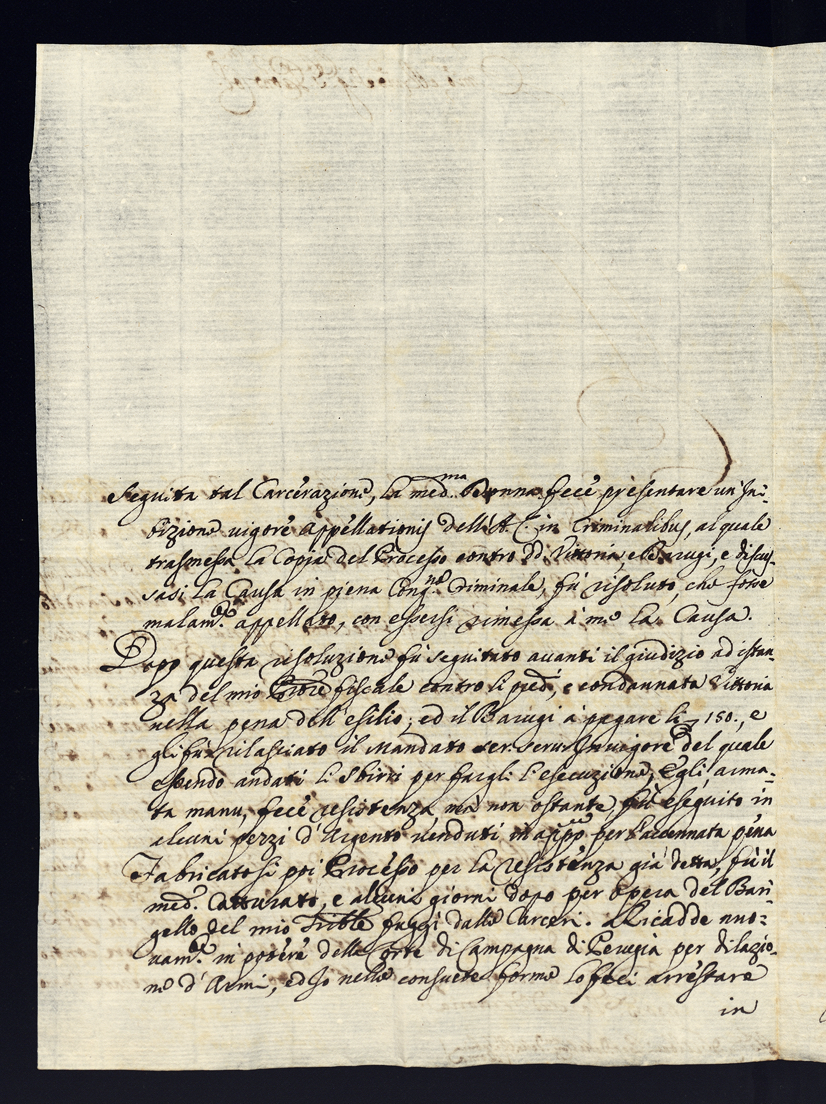 Seguita tal Carcerazione, la med.ma Donna fece presentare un'Ini-
bizione vigore Appellationis dell'A. C. in Criminalibus, al quale
trasmessa la Copia del Processo contro dd. Vittoria, e Barugi, e discus-
sasi la Causa in piena Cong.ne Criminale, fù risoluto, che fosse
malam.te appellato, con essersi rimessa à me la Causa.
Dopo questa risoluzione fù seguitato avanti il giudizio ad istan-
za del mio Fiscale contro li pred., e condannata Vittoria
nella pena dell'esilio, ed il Barugi à pagare 150., e
gli fù rilasciato il Mandato in vigore del quale
essendo andati li Sbirri per fargli l'esecuzione, Egli, arma-
ta manu, fece resistenza, mà non ostante fù eseguito in
alcuni pezzi d'Argento venduti per l'accennata pena
Fabricatosi poi Processo per la resistenza già detta, fù il
med.o catturato, e alcuni giorni dopo per opera del Bari-
gello del mio Trib.le fuggì dalle Carceri. Ricadde nuo-
vam.te in potere della Corte di Campagna di Perugia per dilazio-
ne d'Armi, ed Io nelle consuete forme lo feci arrestare
in